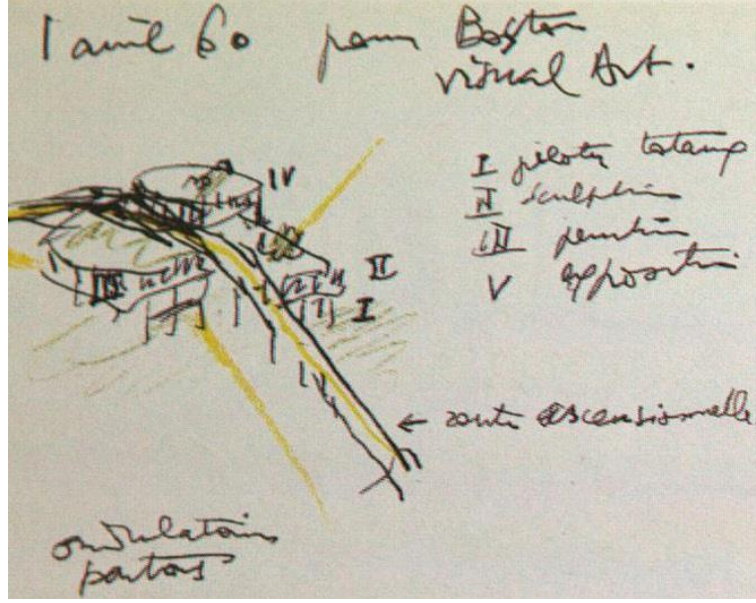 1 avril 60 pour Boston
visual Art.
IV
I pilotis
II sculpture
III peinture
V exposition
II
III
I
← route ascensionnelle
ondulatoires
partout